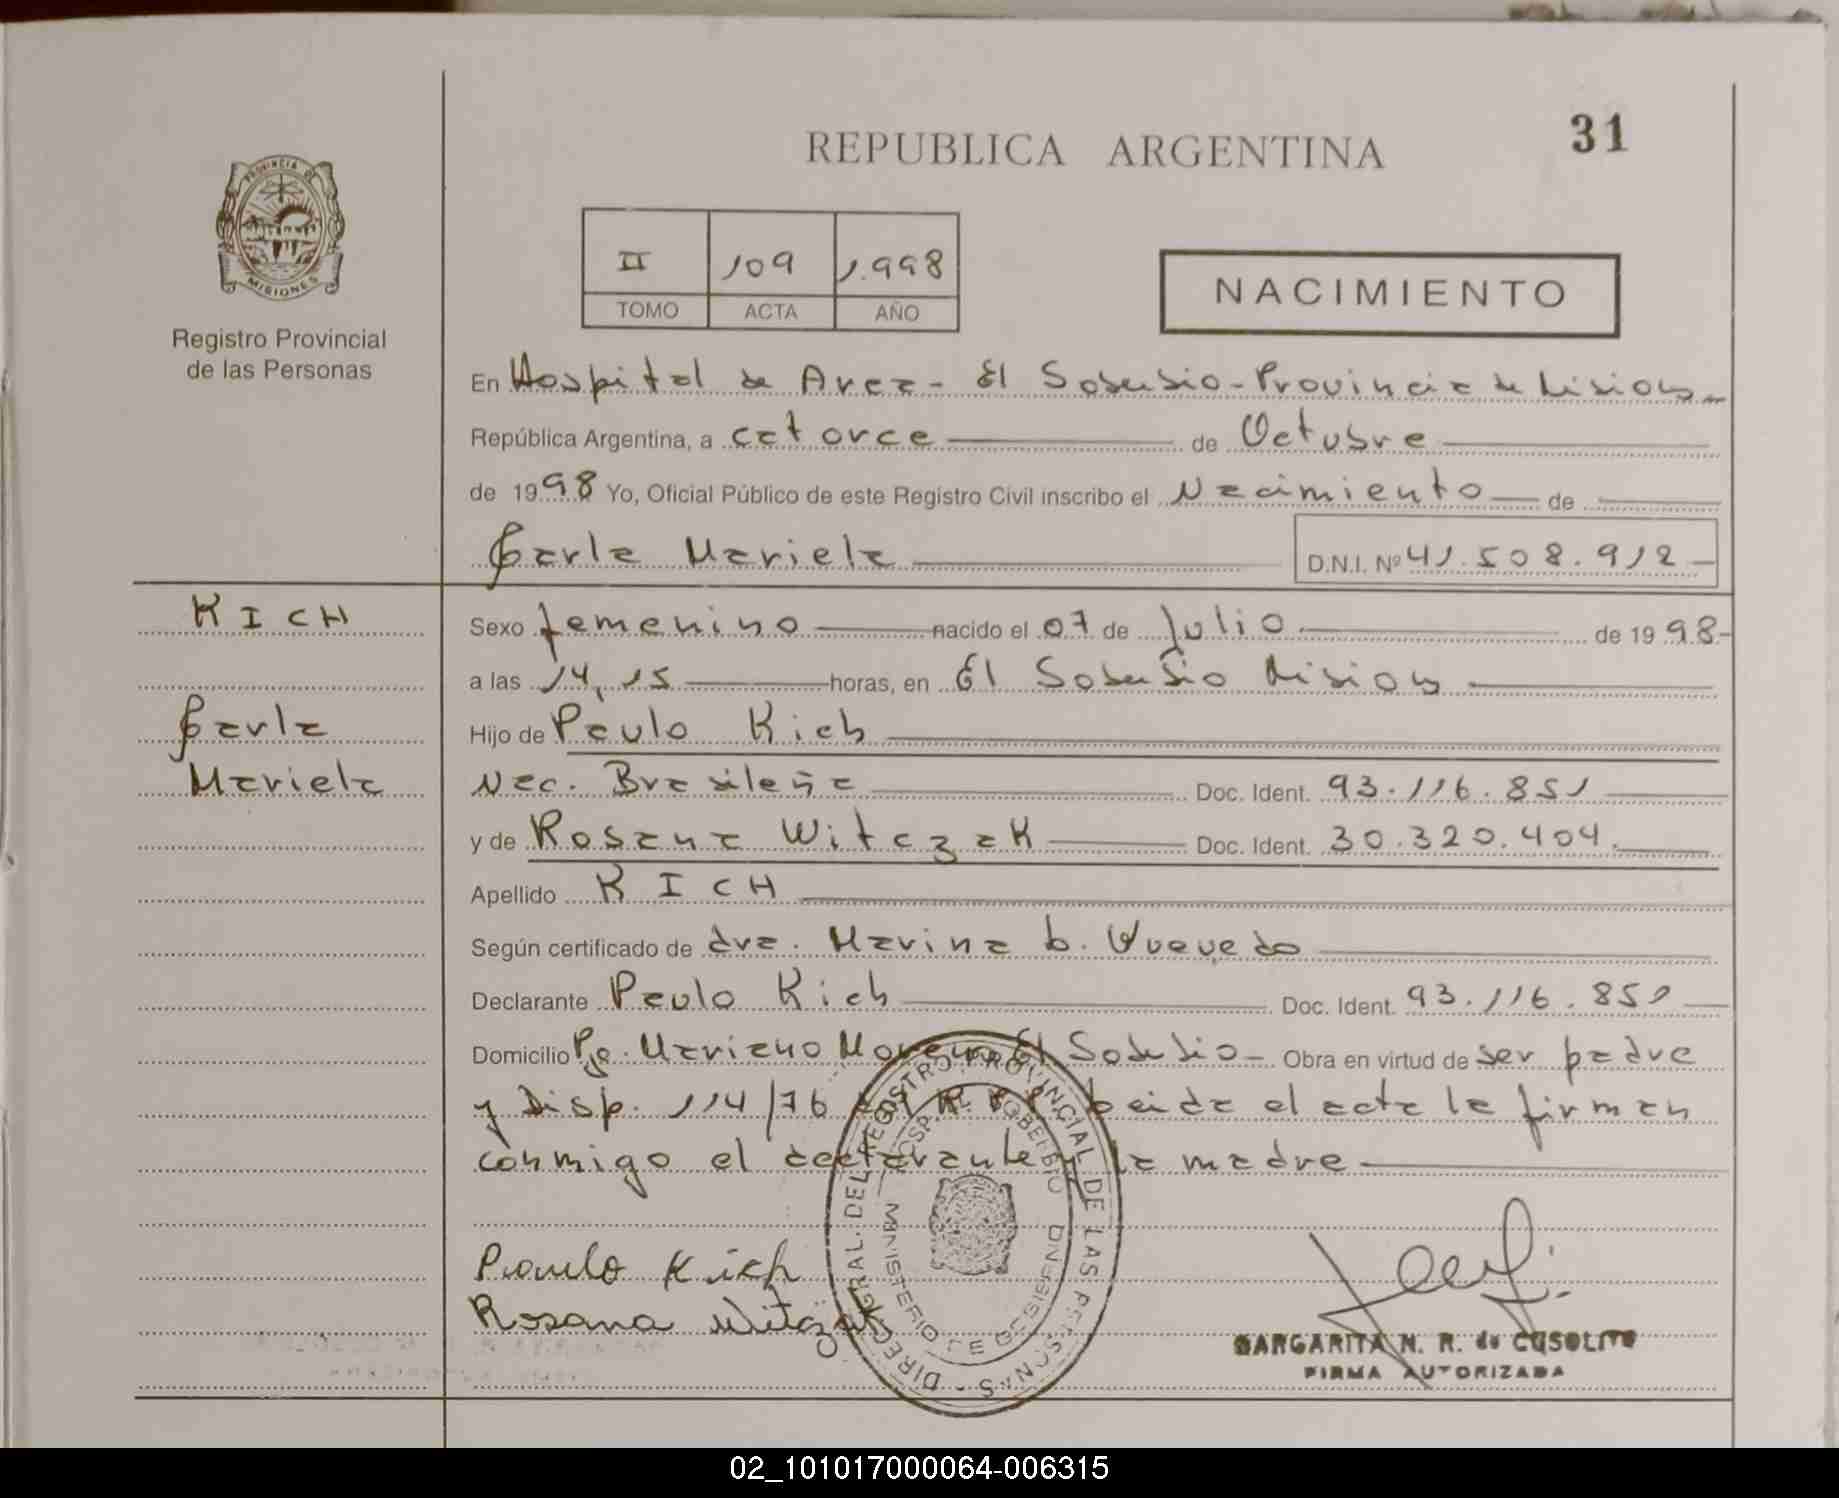 31
REPUBLICA ARGENTINA
PROVINCIA DE
MISIONES
Registro Provincial
de las Personas
II 109 1.998
TOMO ACTA AÑO
NACIMIENTO
En Hospital de Area - El Soberbio - Provincia de Misiones
República Argentina, a catorce de Octubre
de 1998 Yo, Oficial Público de este Registro Civil inscribo el Nacimiento de
Carla Mariela D.N.I. Nº 41.508.912
KICH
Carla
Mariela
Sexo femenino nacido el 07 de Julio de 1998
a las 14,15 horas, en El Soberbio Misiones
Hijo de Paulo Kich
Nac. Brasileña Doc. Ident. 93.116.851
y de Rosana Witczak Doc. Ident. 30.320.404.
Apellido KICH
Según certificado de dra. Marina b. Quevedo
Declarante Paulo Kich Doc. Ident. 93.116.851
Domicilio Pje. Mariano Moreno El Soberbio - Obra en virtud de ser padre
y Disp. 114/76 Leida el acta la firman
conmigo el declarante y la madre
Paulo Kich
Rosana Witczak
DIREC. GRAL. DEL REGISTRO PROVINCIAL DE LAS PERSONAS
HOSP. EL SOBERBIO
MINISTERIO DE GOBIERNO
MARGARITA N. R. de CUSOLITO
FIRMA AUTORIZADA
02_101017000064-006315